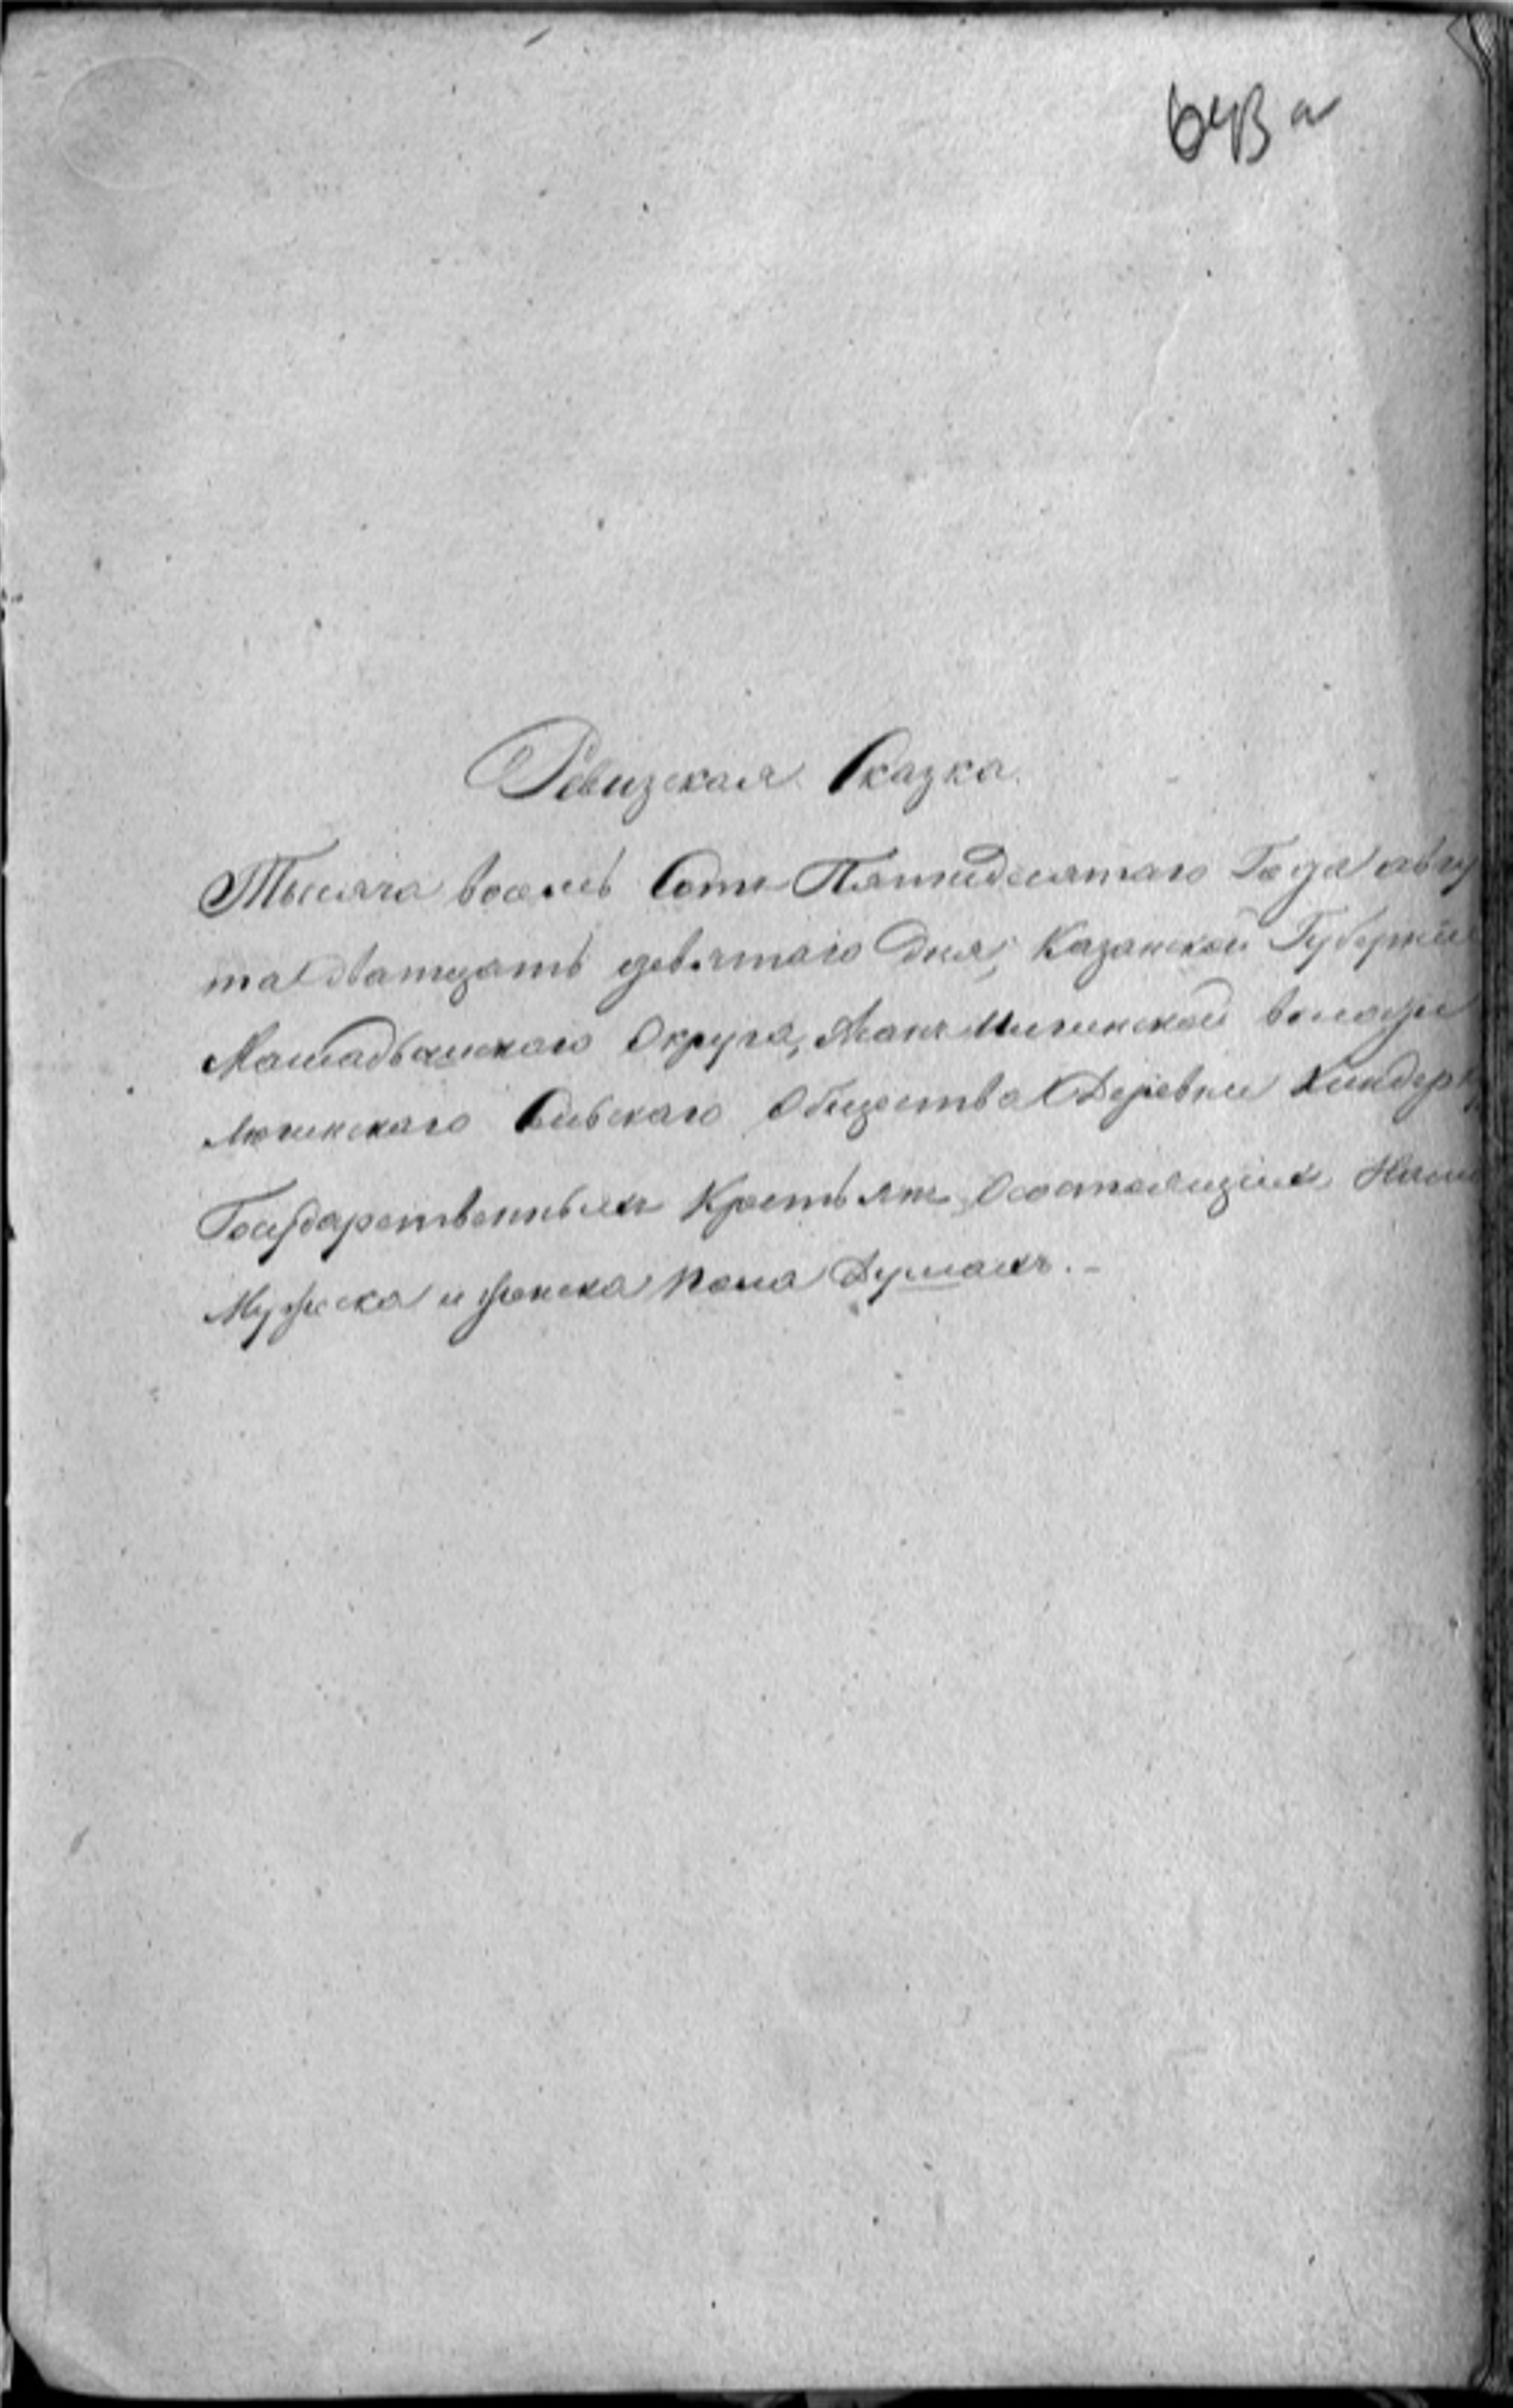 643 а
Ревизская Сказка.
Тысяча восемь Сотъ Пятидесятаго Года авгу
та дватцать девятаго Дня, Казанской Губерніи
Мамадышскаго Округа, волости
Сельскаго Общества Деревни
Государственныхъ Крестьянъ Осостоящихъ
Мужска и женска пола Душахъ.-